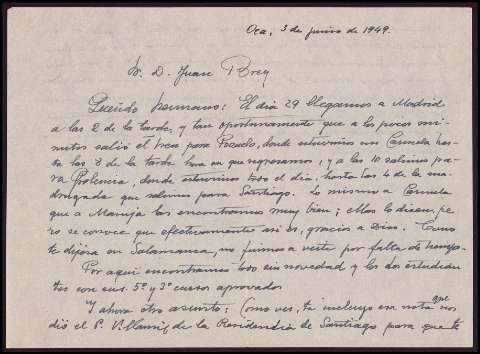 Oca, 3 de junio de 1949.
Sr. D. Juan
Querido hermano: El día 29 llegamos a Madrid
a las 2 de la tarde, y tan oportunamente que a los pocos mi-
nutos salió el tren para Pozuelo, donde estuvimos con Carmela has-
ta las 8 de la tarde hora en que regresamos, y a las 10 salimos pa-
ra Palencia, donde estuvimos todo el día, hasta las 4 de la ma-
drugada que salimos para Santiago. Lo mismo a Carmela
que a Maruja las encontramos muy bien; ellas lo dicen, pe-
ro se conoce que efectivamente así es, gracias a Dios. Como
te dijera en Salamanca, no fuimos a verte por falta de tiempo.
Por aquí encontramos todo sin novedad y los dos estudian-
tes con sus 5º y 3º cursos aprobados.
Y ahora otro asunto: Como ves, te incluyo esa nota que nos
dió el P. Villamil, de la Residencia de Santiago para que te